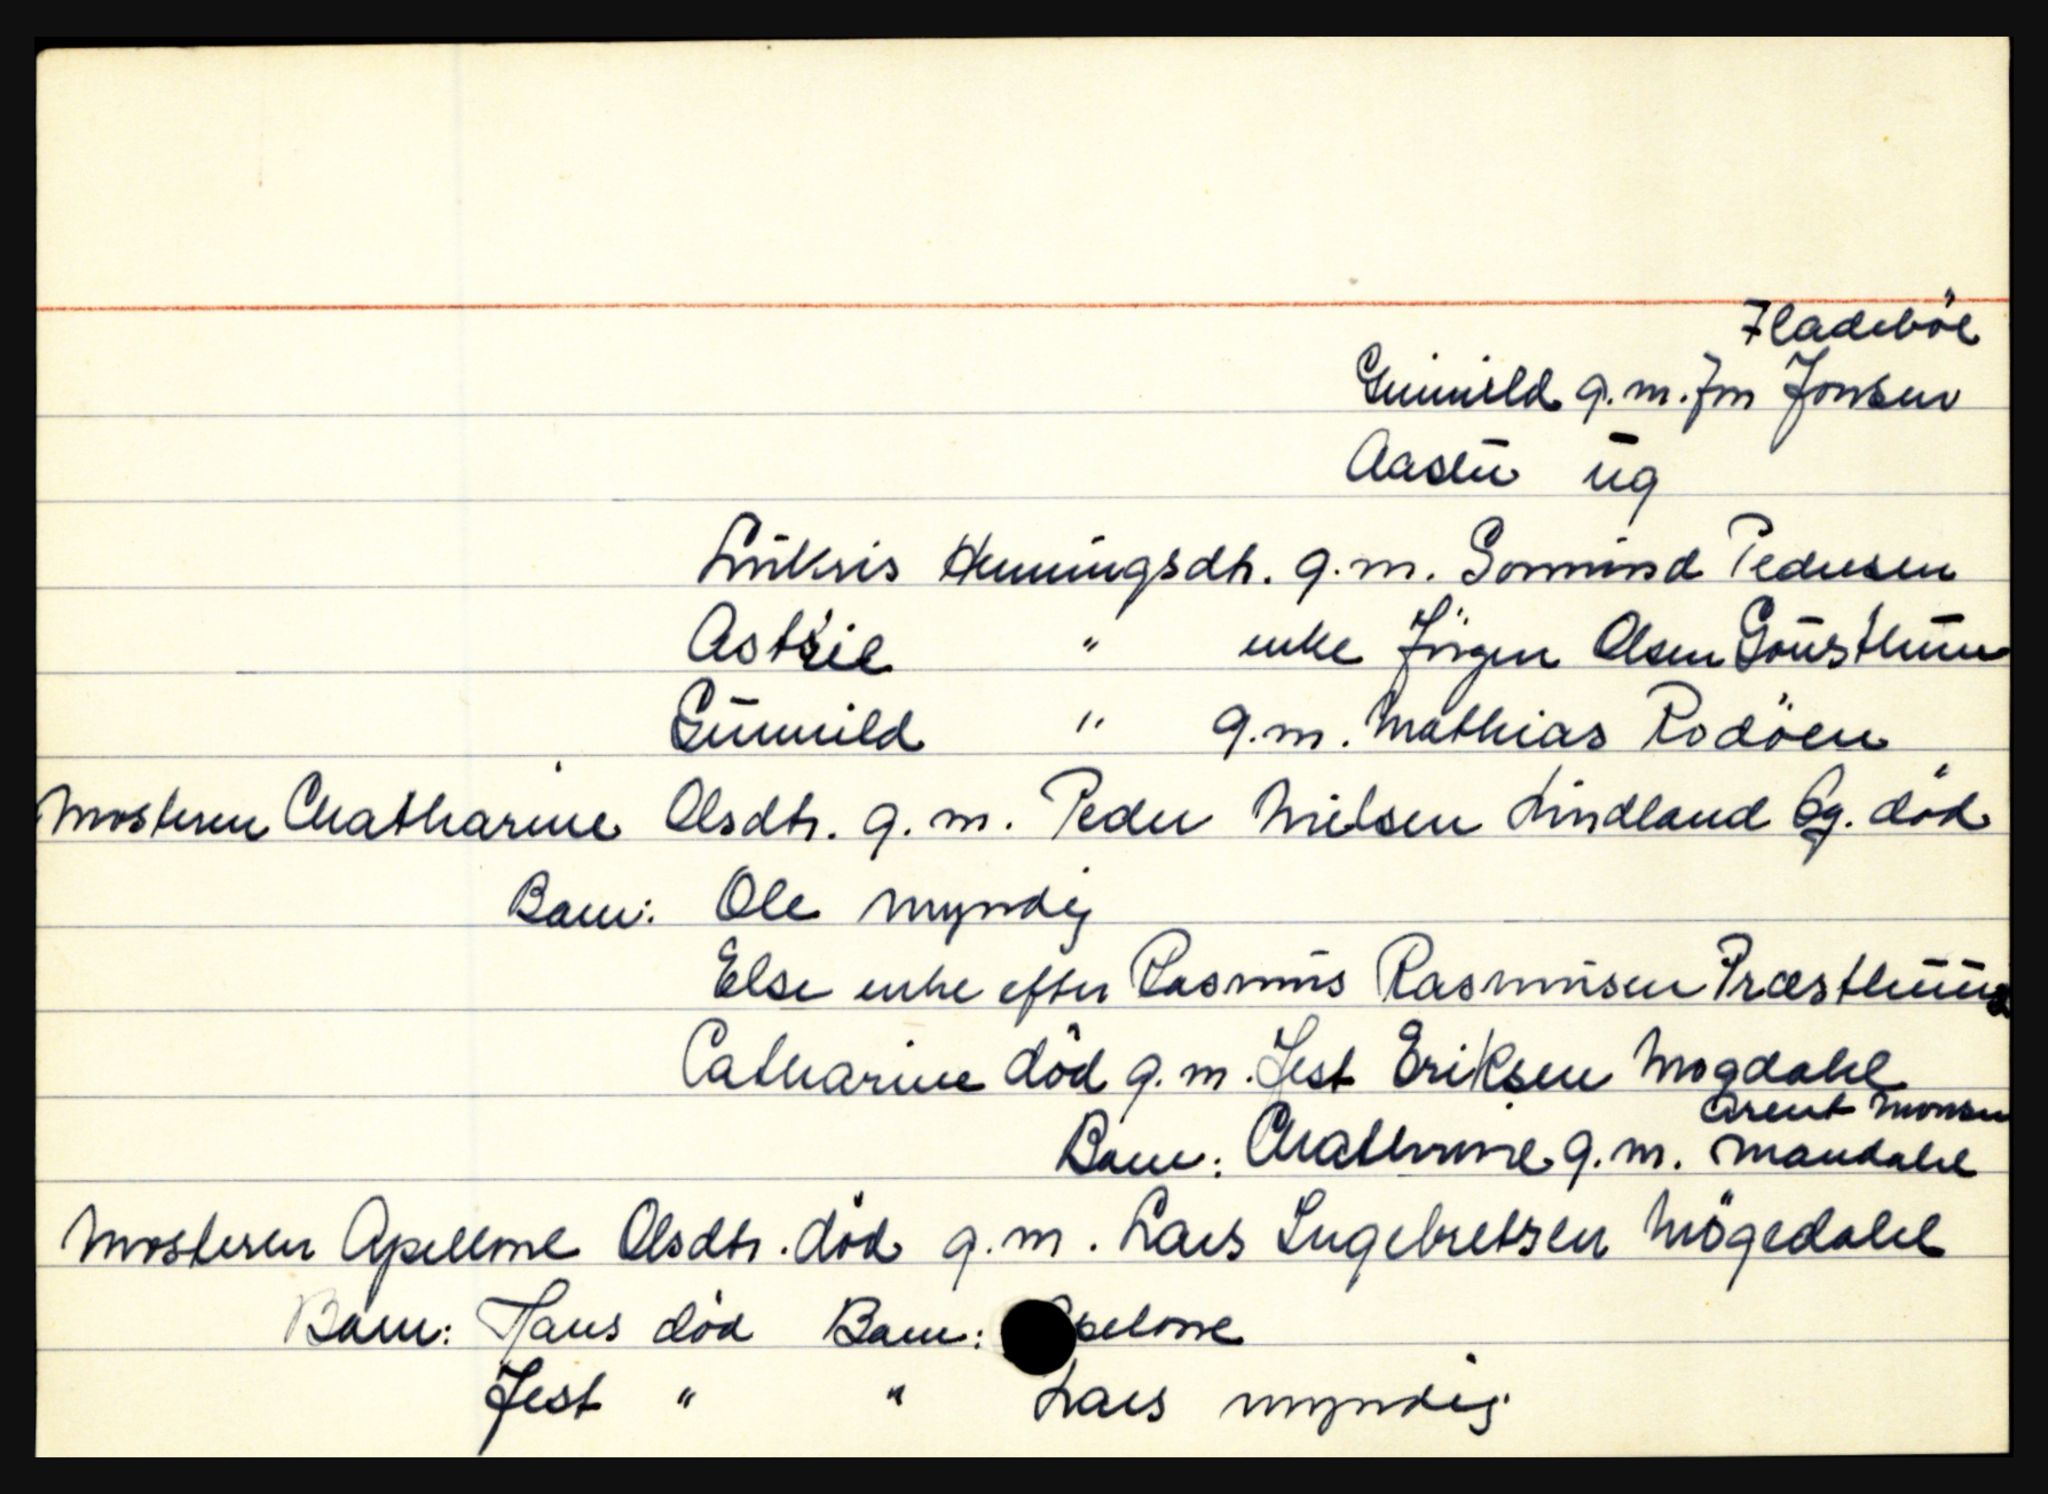 Fladeböe
Gunnild g.m. Jon Jonsen
Aasen ug
Lukris Henningsdtr. g.m. Gormund Pedersen
Astrie " enke Jörgen Olsen Gousthuun
Gunnild " g.m. Mathias Rodöen
Mosteren Chatharine Olsdtr. g.m. Peder Nielsen Lindland bg. död
Barn: Ole myndig
Else enke efter Rasmus Rasmusen Præsthuus
Catharine död g.m. Jest Eriksen Mogdahl
Arent Monsen
Barn: Chathrine g.m. Mandahl
Mosteren Apellone Olsdtr. död g.m. Lars Ingebretsen Mögedahl
Barn: Hans död Barn: Apelone
Jest " " Lars myndig